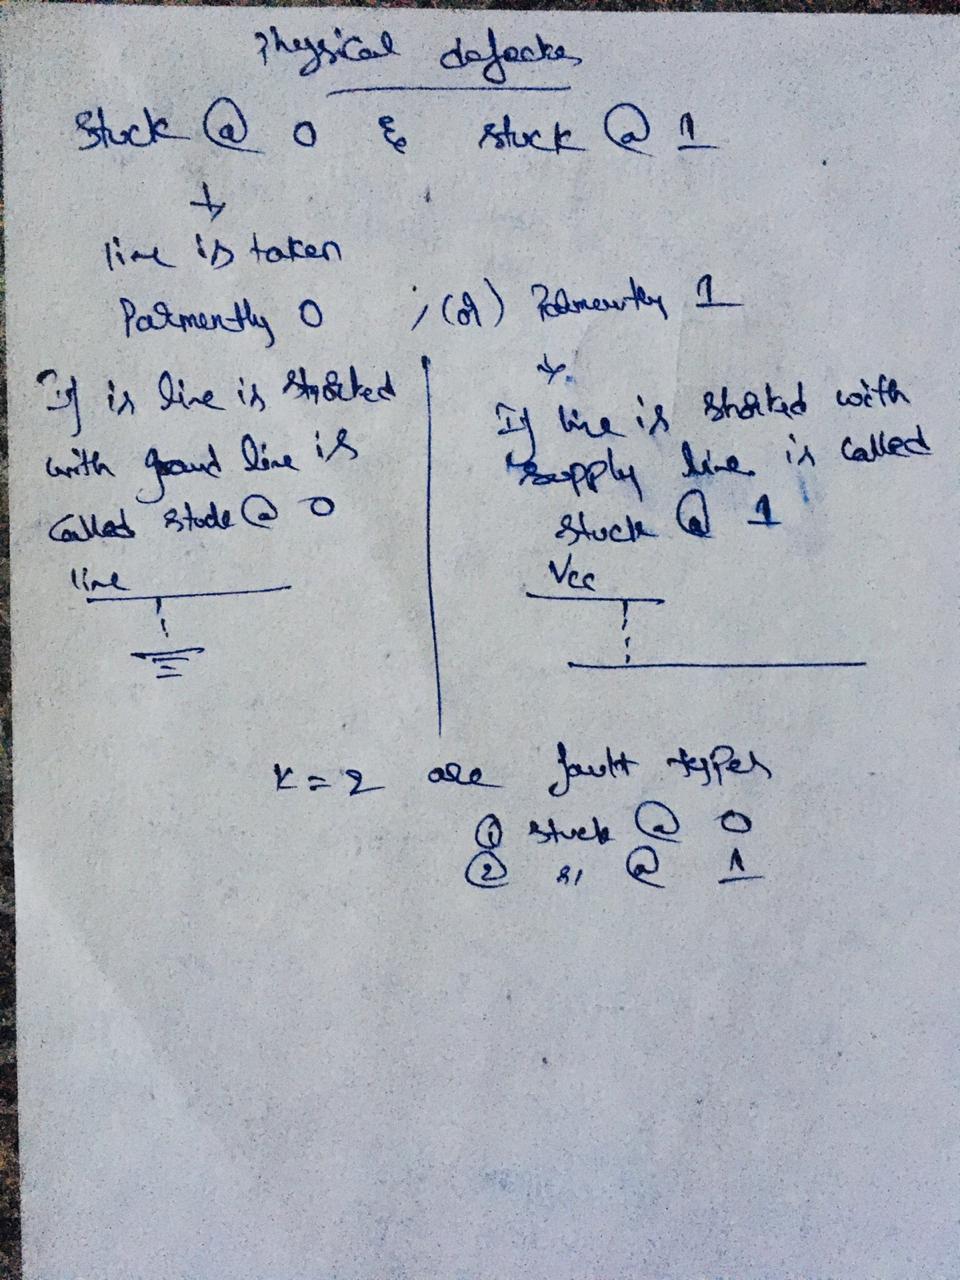 Physical defects
Stuck @ 0 & stuck @ 1
line is taken
Parmently 0 ; (or) Parmently 1
If is line is shorted
with ground line is
called stuck @ 0
line
If line is shorted with
supply line is called
stuck @ 1
Vcc
K = 2 are fault types
① stuck @ 0
② @ 1